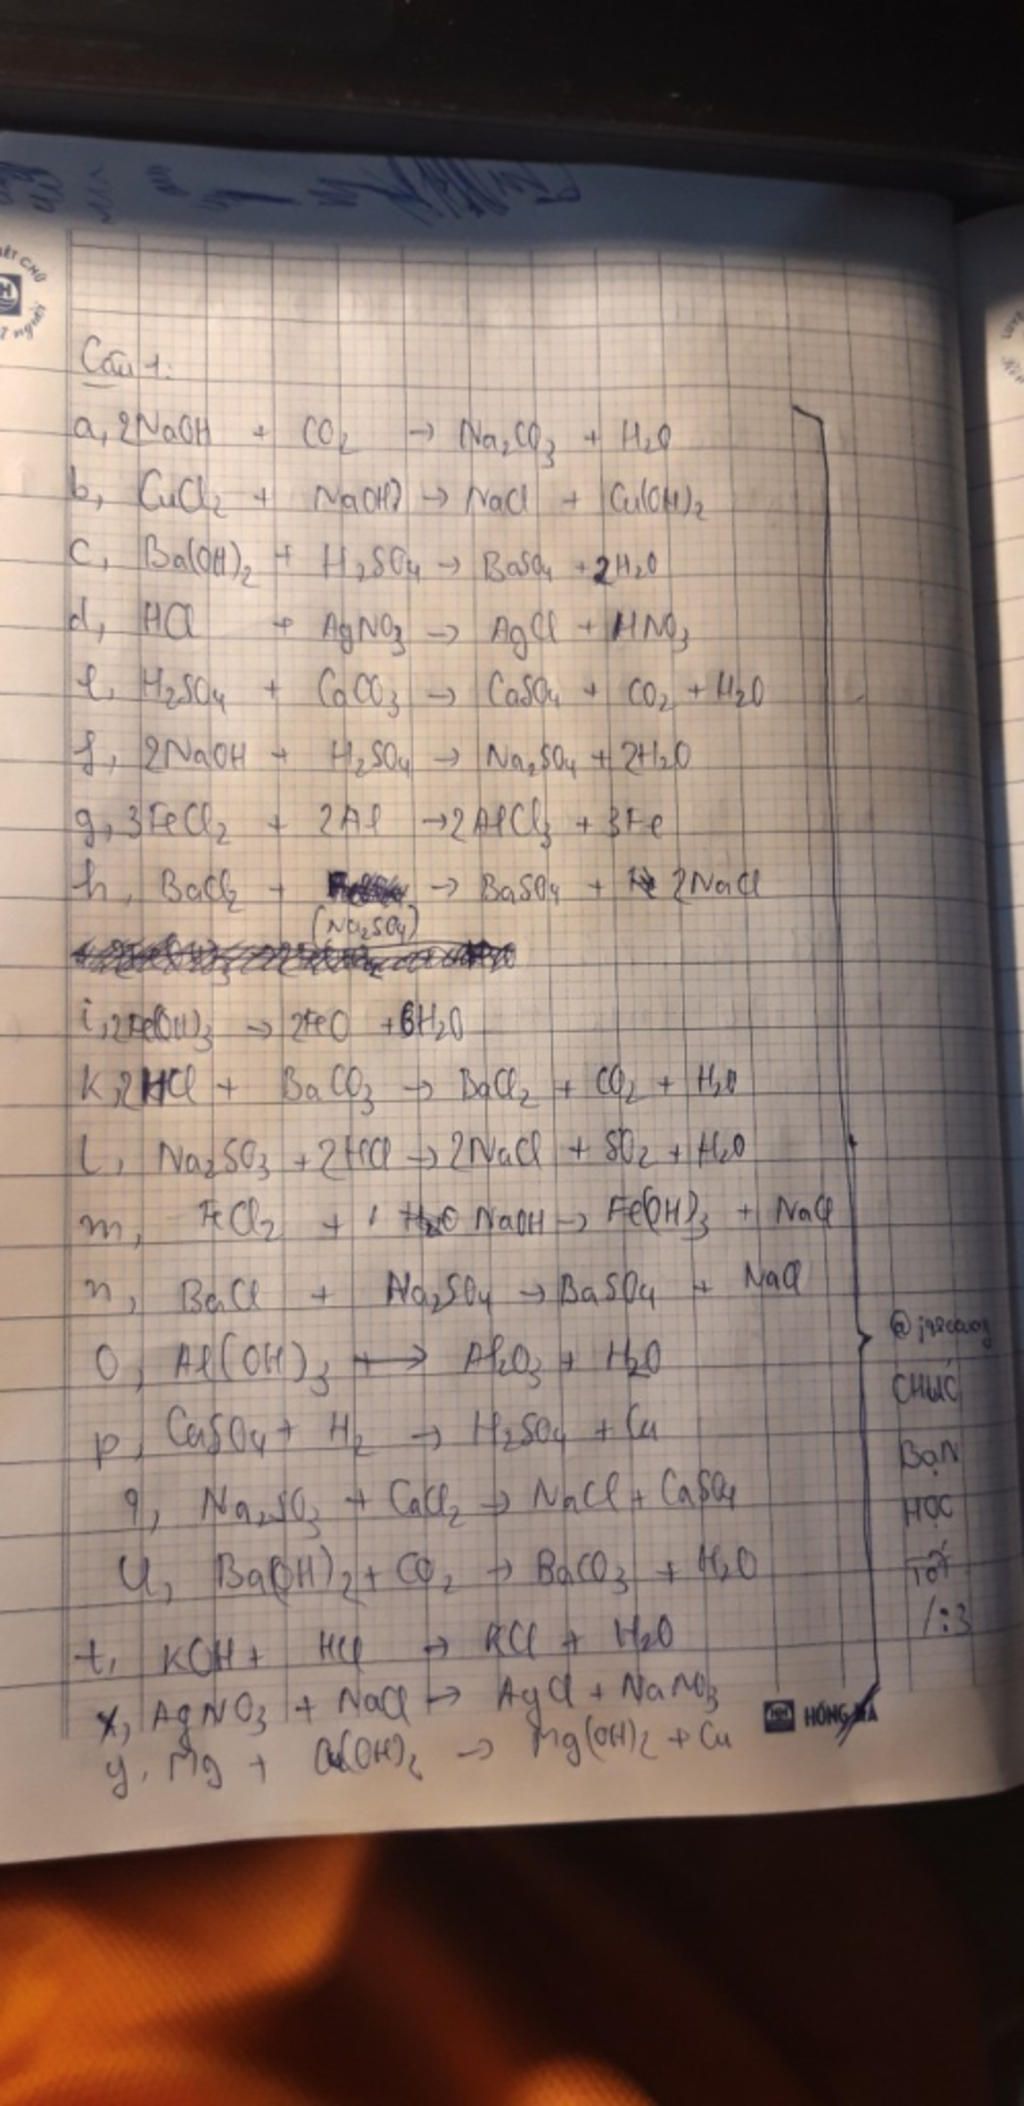 Câu 1:
a, 2NaOH + CO₂ → Na₂CO₃ + H₂O
b, CuCl₂ + NaOH → NaCl + Cu(OH)₂
c, Ba(OH)₂ + H₂SO₄ → BaSO₄ + 2H₂O
d, HCl + AgNO₃ → AgCl + HNO₃
e, H₂SO₄ + CaCO₃ → CaSO₄ + CO₂ + H₂O
f, 2NaOH + H₂SO₄ → Na₂SO₄ + 2H₂O
g, 3FeCl₂ + 2Al → 2AlCl₃ + 3Fe
h, BaCl₂ + → BaSO₄ + 2NaCl
(Na₂SO₄)
i, 2Fe(OH)₃ → 2FeO + 6H₂O
k, 2HCl + BaCO₃ → BaCl₂ + CO₂ + H₂O
l, Na₂SO₃ + 2HCl → 2NaCl + SO₂ + H₂O
m, FeCl₂ + NaOH → Fe(OH)₃ + NaCl
n, BaCl + Na₂SO₄ → BaSO₄ + NaCl
o, Al(OH)₃ → Al₂O₃ + H₂O
p, CaSO₄ + H₂ → H₂SO₄ + Cu
q, Na₂SO₃ + CaCl₂ → NaCl + CaSO₄
u, Ba(OH)₂ + CO₂ → BaCO₃ + H₂O
t, KOH + HCl → KCl + H₂O
x, AgNO₃ + NaCl → AgCl + NaNO₃
y, Mg + Cu(OH)₂ → Mg(OH)₂ + Cu
CHÚC
BẠN
HỌC
TỐT
/:3
HỒNG HÀ